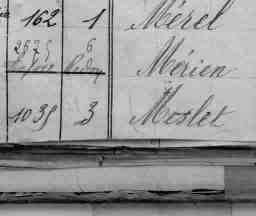 162 1 Mérel
2675 6
Redon Mérien
1039 3 Moslet